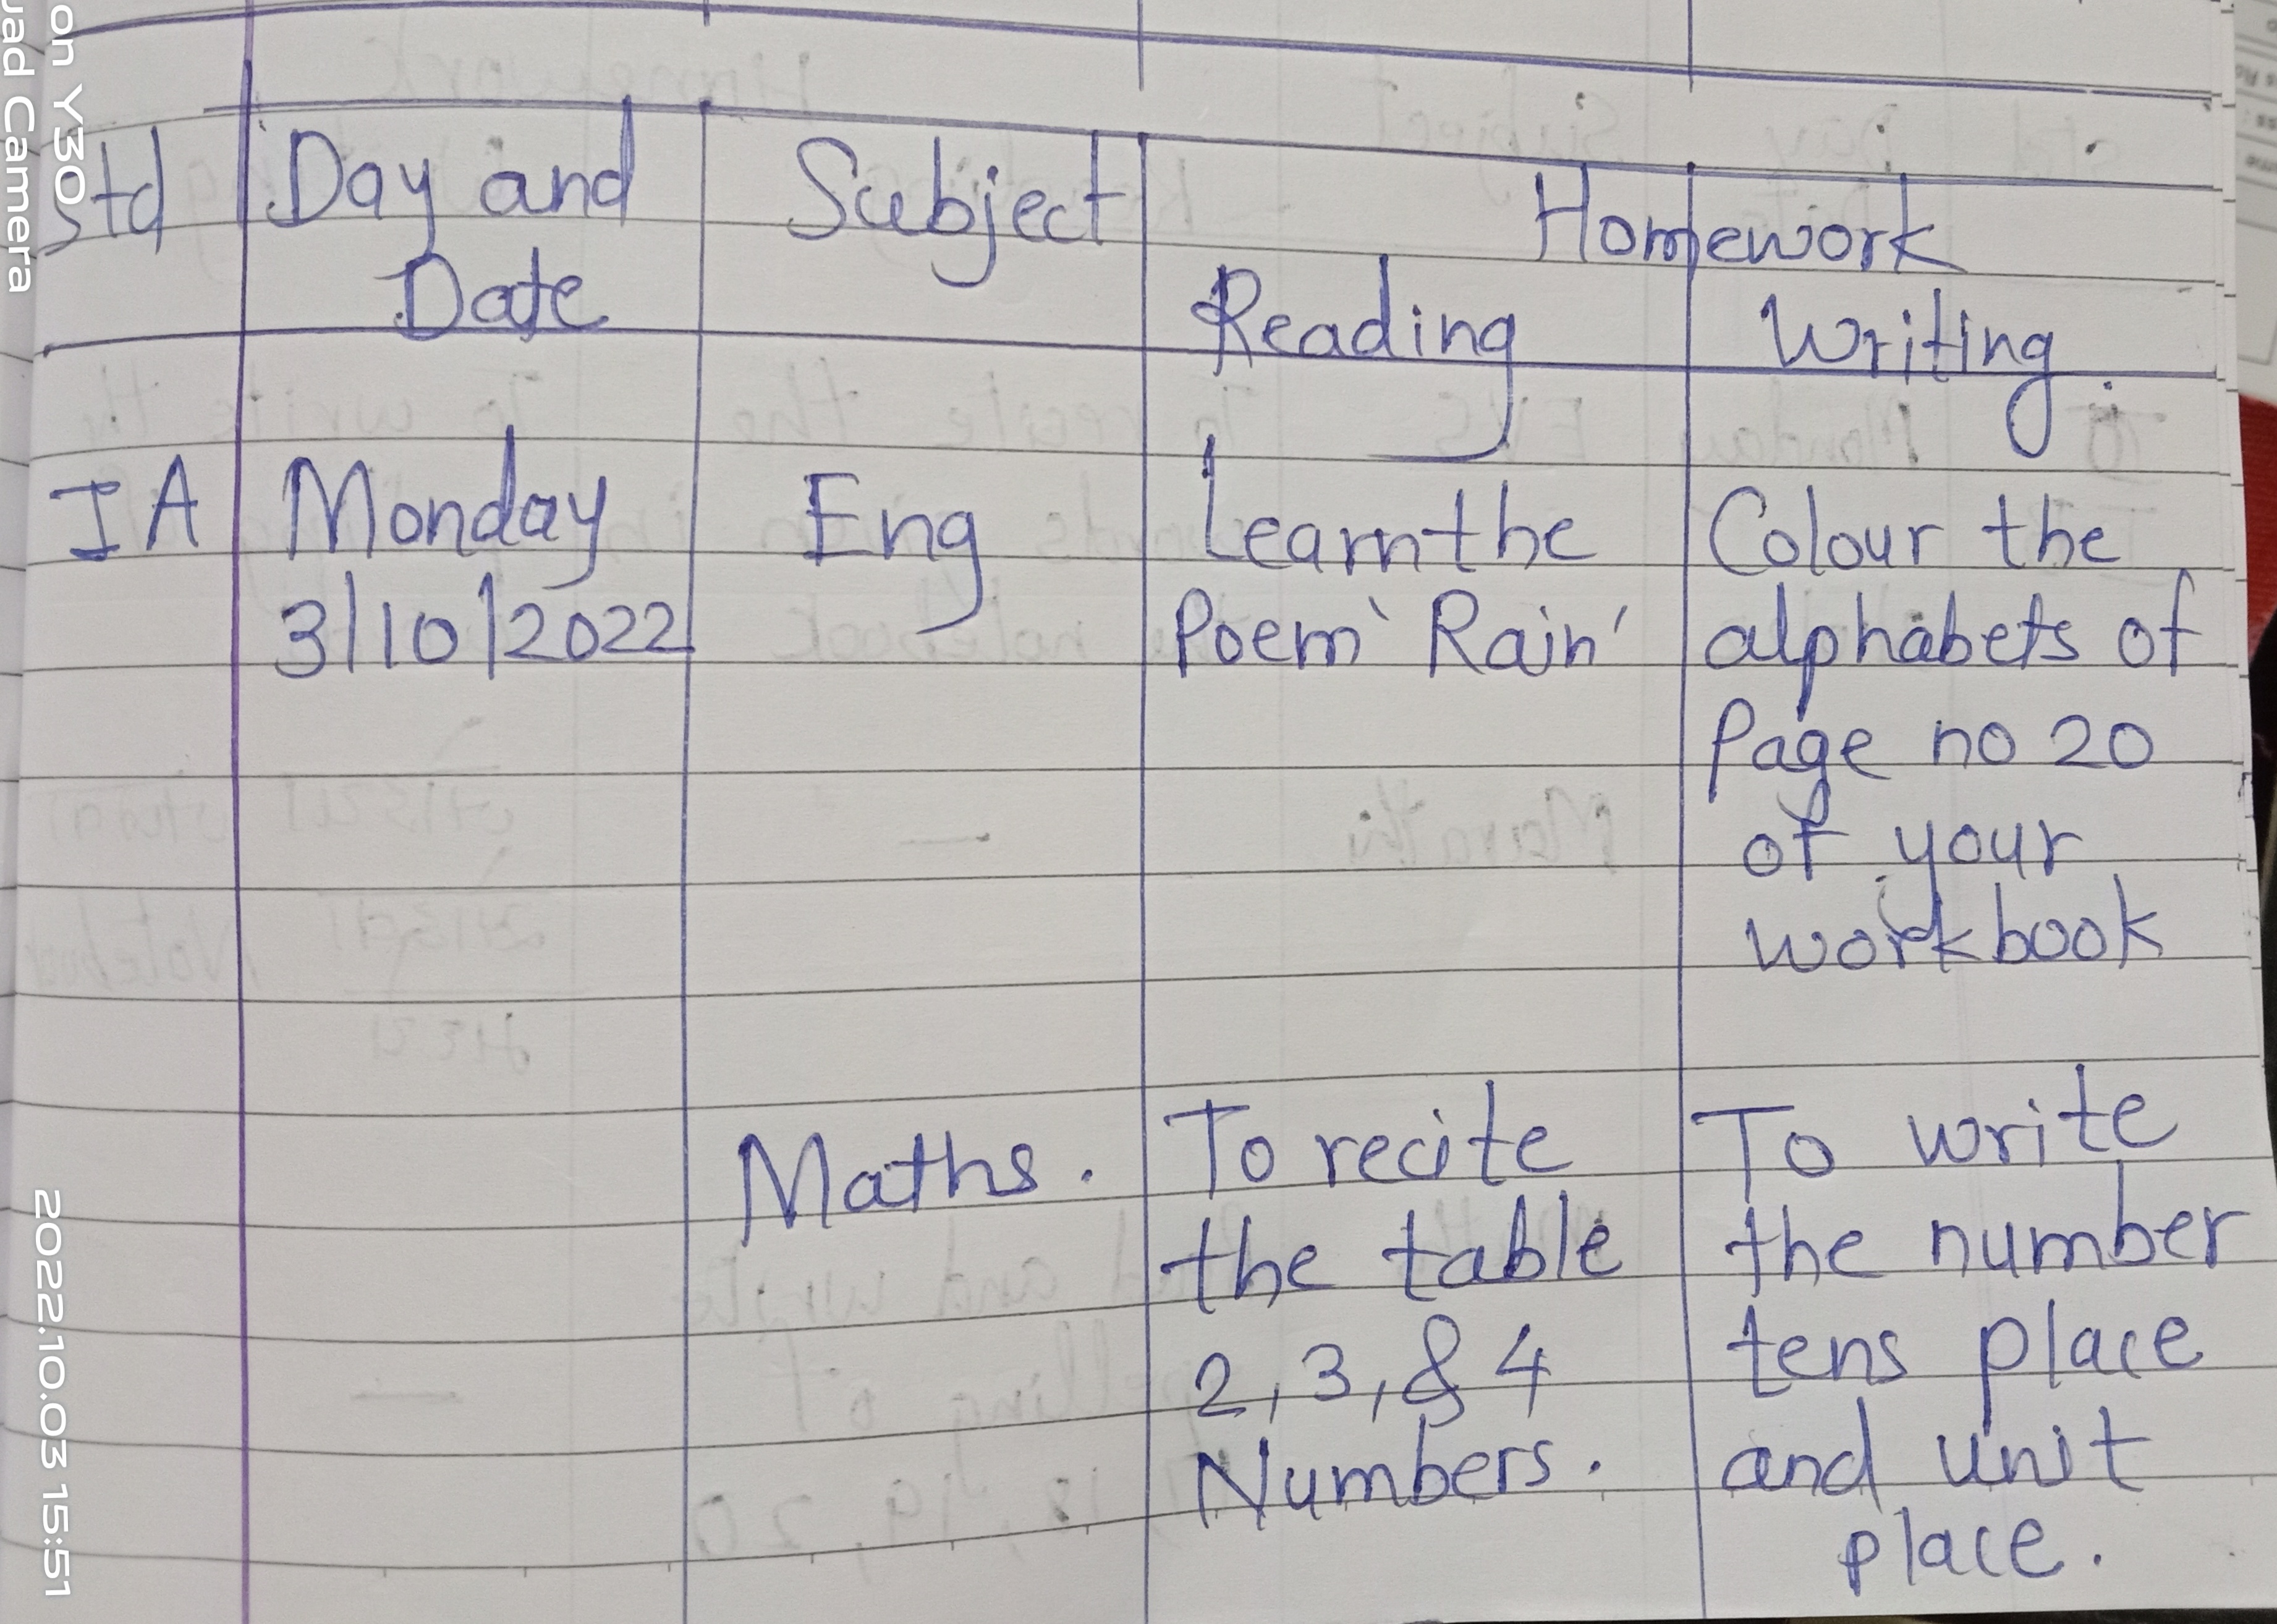 Std Day and Date Subject Homework
Reading Writing
I A Monday Eng Learn the Colour the
3/10/2022 Poem 'Rain' alphabets of
Page no 20
of your
workbook
Maths. To recite To write
the table the number
2, 3, & 4 tens place
Numbers. and unit
place.
on Y30
uad Camera
2022.10.03 15:51